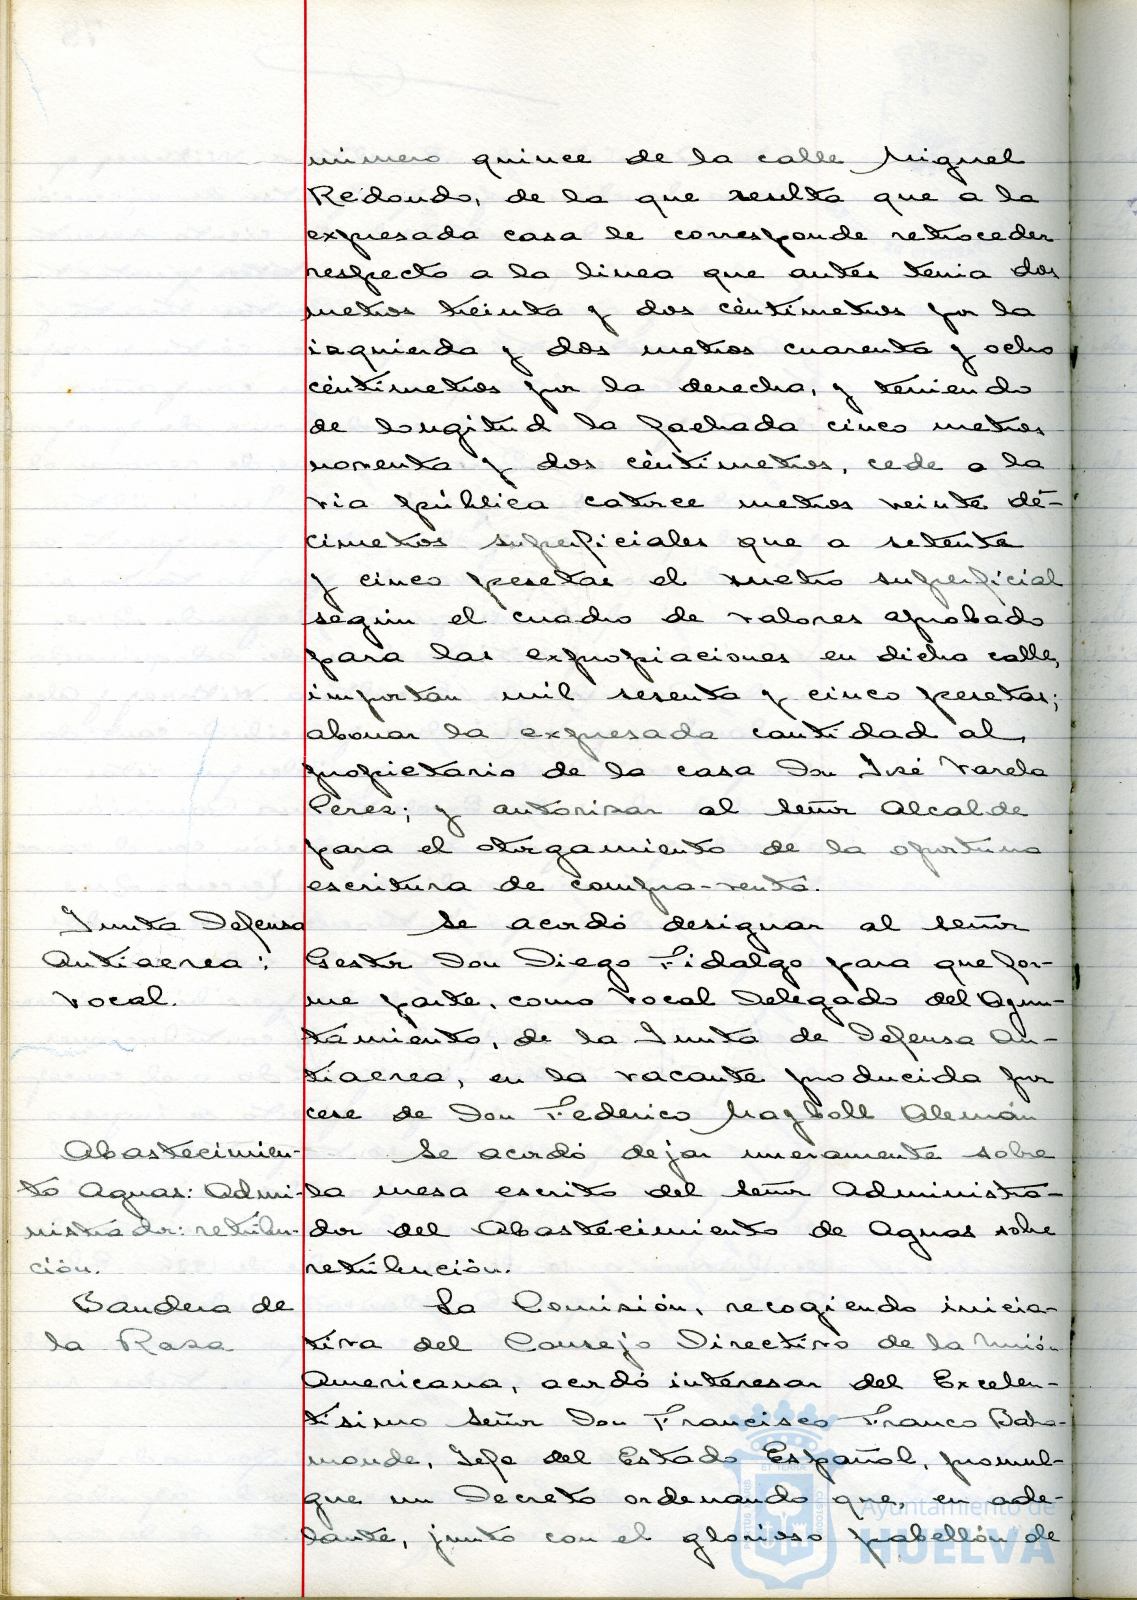 número quince de la calle Miguel
Redondo, de la que resulta que a la
expresada casa le corresponde retroceder
respecto a la linea que antes tenia dos
metros treinta y dos céntimetros por la
izquierda y dos metros cuarenta y ocho
céntimetros por la derecha, y teniendo
de longitud la fachada cinco metros
noventa y dos céntimetros, cede a la
via pública catorce metros veinte dé-
cimetros superficiales que a setenta
y cinco pesetas el metro superficial
según el cuadro de valores aprobado
para las expropiaciones en dicha calle,
importan mil sesenta y cinco pesetas;
abonar la expresada cantidad al
propietario de la casa Don José Varela
Perez; y autorizar al señor Alcalde
para el otorgamiento de la oportuna
escritura de compra-venta.
Junta Defensa
Antiaerea:
Vocal.
Se acordó designar al señor
Gestor Don Diego Fidalgo para que for-
me parte, como Vocal Delegado del Ayun-
tamiento, de la Junta de Defensa An-
tiaerea, en la vacante producida por
cese de Don Federico Alemán
Abastecimien-
to Aguas: Admi-
nistrador: retribu-
ción.
Se acordó dejar nuevamente sobre
la mesa escrito del señor Administra-
dor del Abastecimiento de Aguas sobre
retribución.
Bandera de
la Raza
La Comisión, recogiendo inicia-
tiva del Consejo Directivo de la Unión
Americana, acordó interesar del Excelen-
tisimo señor Don Francisco Franco Baha-
monde, Jefe del Estado Español, promul-
gue un Decreto ordenando que, en ade-
lante, junto con el glorioso pabellón de
Ayuntamiento de
HUELVA